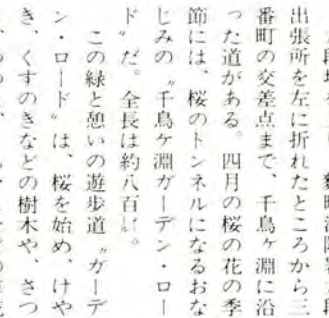 出張所を左に折れたところから三
番町の交差点まで、千鳥ヶ淵に沿
った道がある。四月の桜の花の季
節には、桜のトンネルになるおな
じみの〝千鳥ケ淵ガーデン・ロー
ド〟だ。全長は約八百㍍。
この緑と憩いの遊歩道〝ガーデ
ン・ロード〟は、桜を始め、けや
き、くすのきなどの樹木や、さつ